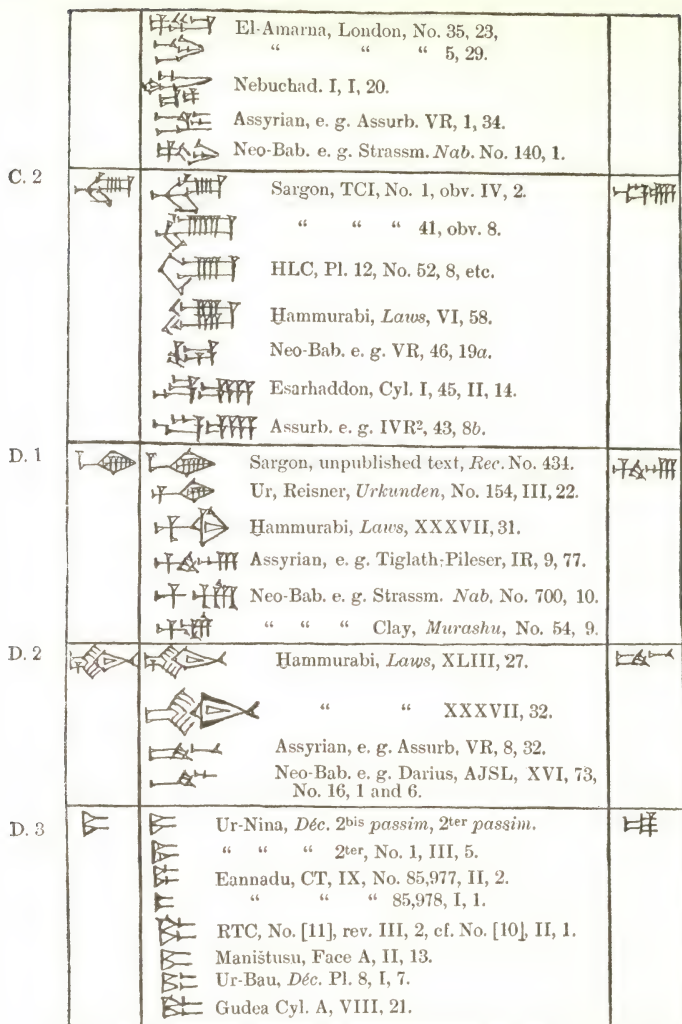 El-Amarna, London, No. 35, 23,
“ “ “ 5, 29.
Nebuchad. I, I, 20.
Assyrian, e. g. Assurb. VR, 1, 34.
Neo-Bab. e. g. Strassm. Nab. No. 140, 1.
C. 2 Sargon, TCI, No. 1, obv. IV, 2.
“ “ “ 41, obv. 8.
HLC, Pl. 12, No. 52, 8, etc.
Ḫammurabi, Laws, VI, 58.
Neo-Bab. e. g. VR, 46, 19a.
Esarhaddon, Cyl. I, 45, II, 14.
Assurb. e. g. IVR², 43, 8b.
D. 1 Sargon, unpublished text, Rec. No. 434.
Ur, Reisner, Urkunden, No. 154, III, 22.
Ḫammurabi, Laws, XXXVII, 31.
Assyrian, e. g. Tiglath-Pileser, IR, 9, 77.
Neo-Bab. e. g. Strassm. Nab. No. 700, 10.
“ “ “ Clay, Murashu, No. 54, 9.
D. 2 Ḫammurabi, Laws, XLIII, 27.
“ “ XXXVII, 32.
Assyrian, e. g. Assurb, VR, 8, 32.
Neo-Bab. e. g. Darius, AJSL, XVI, 73,
No. 16, 1 and 6.
D. 3 Ur-Nina, Déc. 2bis passim, 2ter passim.
“ “ “ 2ter, No. 1, III, 5.
Eannadu, CT, IX, No. 85,977, II, 2.
“ “ “ 85,978, I, 1.
RTC, No. [11], rev. III, 2, cf. No. [10], II, 1.
Maništusu, Face A, II, 13.
Ur-Bau, Déc. Pl. 8, I, 7.
Gudea Cyl. A, VIII, 21.